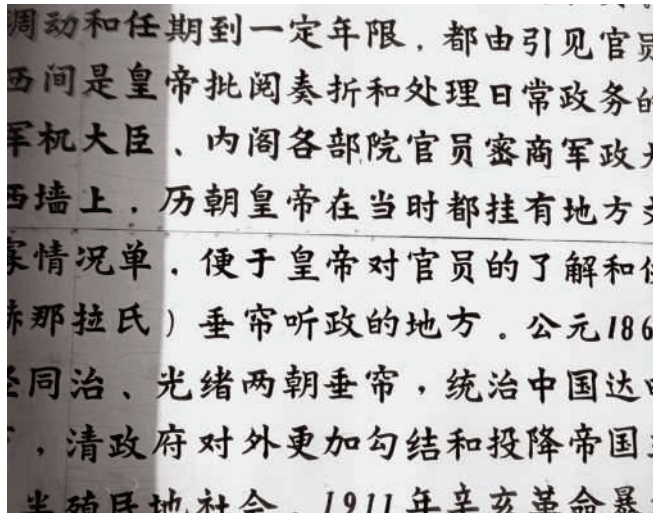 调动和任期到一定年限，都由引见官员
西间是皇帝批阅奏折和处理日常政务的
军机大臣、内阁各部院官员密商军政大
西墙上，历朝皇帝在当时都挂有地方文
寡情况单，便于皇帝对官员的了解和使
赫那拉氏）垂帘听政的地方。公元186
经同治、光绪两朝垂帘，统治中国达
，清政府对外更加勾结和投降帝国主
半殖民地社会。1911年辛亥革命暴